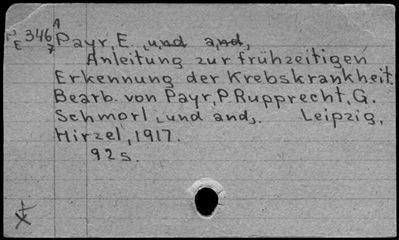 E 346 A 7 Payr, E. und and,
Anleitung zur frühzeitigen
Erkennung der Krebskrankheit.
Bearb. von Payr, P. Rupprecht, G.
Schmorl und and. Leipzig,
Hirzel, 1917.
92 s.